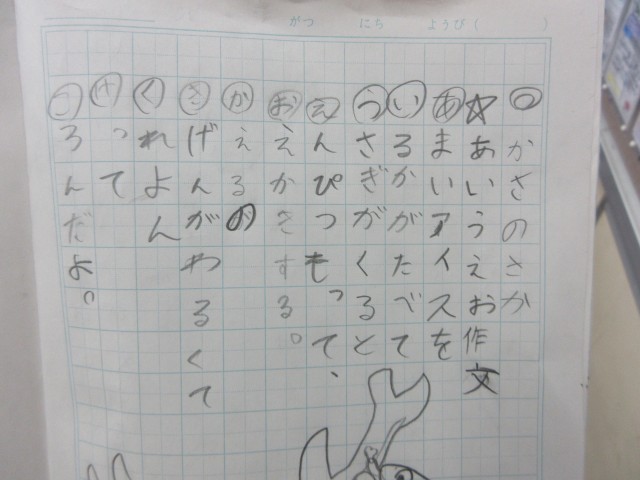 がつ にち ようび( )
かさのさか
☆あいうえお作文
あまいアイスを
いるかがたべて
うさぎがくると
えんぴつもって、
おえかきする。
かえるの
きげんがわるくて
くれよん
けって
ころんだよ。